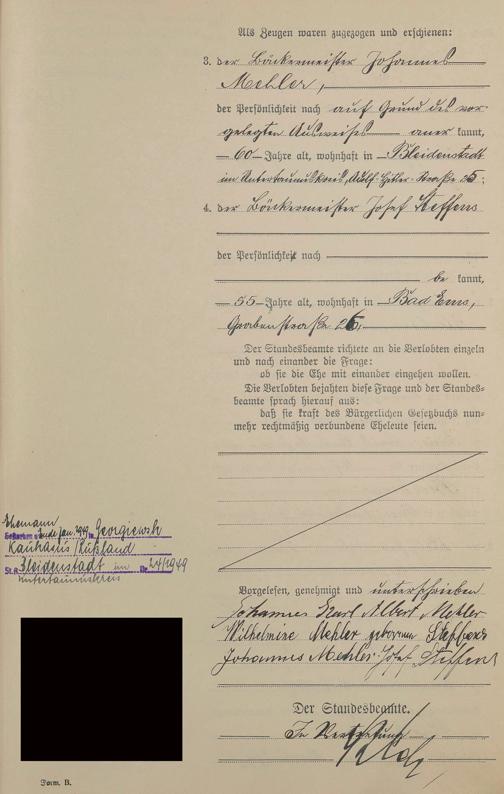 Als Zeugen waren zugezogen und erschienen:
3. der Bäckermeister Johannes
Mehler,
der Persönlichkeit nach auf Grund des vor-
gelegten Ausweises aner kannt,
60 Jahre alt, wohnhaft in Bleidenstadt
im Untertaunuskreis, Adolf-Hitler-Straße 25;
4. der Bäckermeister Josef Steffens
der Persönlichkeit nach
be kannt,
55 Jahre alt, wohnhaft in Bad Ems,
Grabenstraße 26.
Der Standesbeamte richtete an die Verlobten einzeln
und nach einander die Frage:
ob sie die Ehe mit einander eingehen wollen.
Die Verlobten bejahten diese Frage und der Standes-
beamte sprach hierauf aus:
daß sie kraft des Bürgerlichen Gesetzbuchs nun-
mehr rechtmäßig verbundene Eheleute seien.
Ehemann
Gestorben Ende Jan. in Georgiewsk
Kaukasus/Rußland
St.A. Bleidenstadt im Nr. 24/1949
Untertaunuskreis
Vorgelesen, genehmigt und unterschrieben
Johannes Karl Albert Mehler
Wilhelmine Mehler geborene Steffens
Johannes Mehler. Josef Steffens
Der Standesbeamte.
In Vertretung
Form. B.